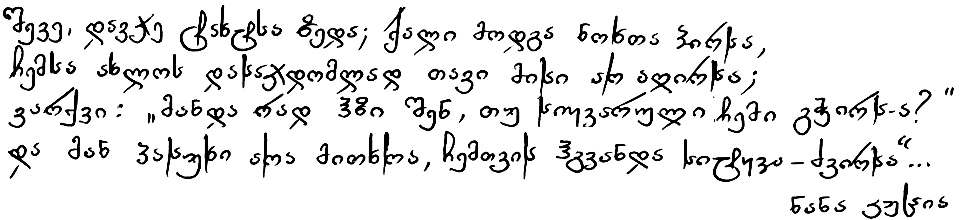 შევე, დავჯე ტახტსა ზედა; ქალი მოდგა ნოხთა პირსა,
ჩემსა ახლოს დასაჯდომლად თავი მისი არ აღირსა;
ვარქვი: „მანდა რად ჰზი შენ, თუ სიყვარული ჩემი გჭირს-ა?“
და მან პასუხი არა მითხრა, ჩემთვის ჰგვანდა სიტყვა-ძვირსა“...
ნანა კუცია